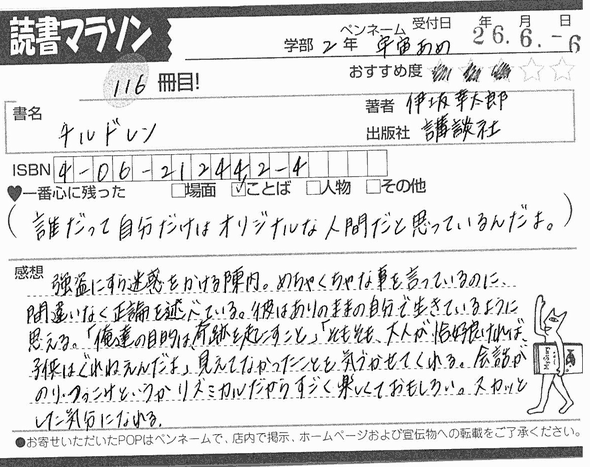 読書マラソン
学部 2年
ペンネーム 宇宙あめ
受付日 年 月 日
26.6.-6
116 冊目!
おすすめ度
書名 チルドレン
著者 伊坂幸太郎
出版社 講談社
ISBN 4-06-212442-4
♥一番心に残った □場面 ☑ことば □人物 □その他
(誰だって自分だけはオリジナルな人間だと思っているんだよ。)
感想 強盗にすら迷惑をかける陣内。めちゃくちゃな事を言っているのに、
間違いなく正論を述べている。彼はありのままの自分で生きているように
思える。「俺達の目的は、奇跡を起こすこと」「そもそも、大人が恰好良ければ、
子供はぐれねえんだよ」見えてなかったことを気づかせてくれる。会話が
のり・つっこけというかリズミカルだからすごく楽しくておもしろい。スカッと
した気分になれる。
Mystery
●お寄せいただいたPOPはペンネームで、店内で掲示、ホームページおよび宣伝物への転載をご了承ください。